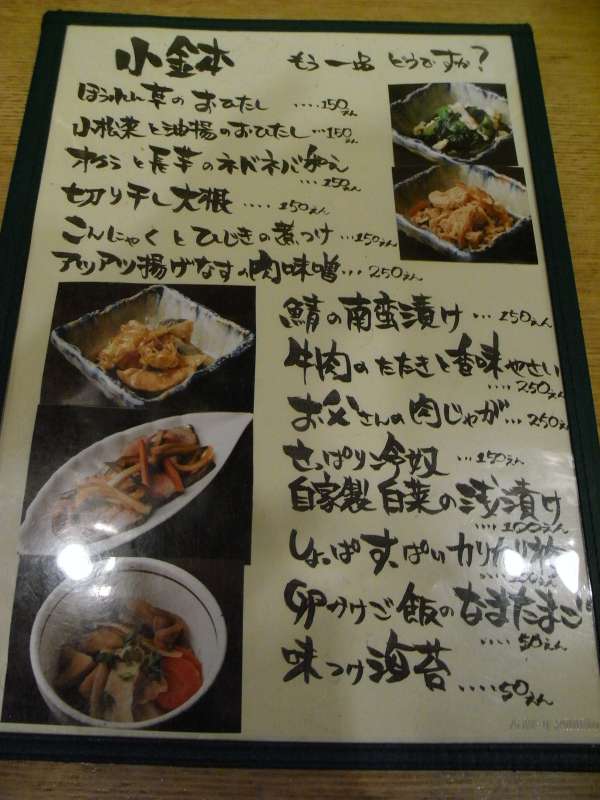 小鉢 もう一品どうですか?
ほうれん草のおひたし ....150えん
小松菜と油揚のおひたし...150えん
オクラと長芋のネバネバ和え
.....150えん
切り干し大根 ....150えん
こんにゃくとひじきの煮つけ...150えん
アツアツ揚げなすの肉味噌...250えん
鯖の南蛮漬け ...150えん
牛肉のたたきと香味やさい
.....250えん
お父さんの肉じゃが...250えん
さっぱり冷奴 ...150えん
自家製白菜の浅漬け
....100えん
しょっぱすっぱいカリカリ梅
卵かけご飯のなまたまご
....50えん
味つけ海苔 ....50えん